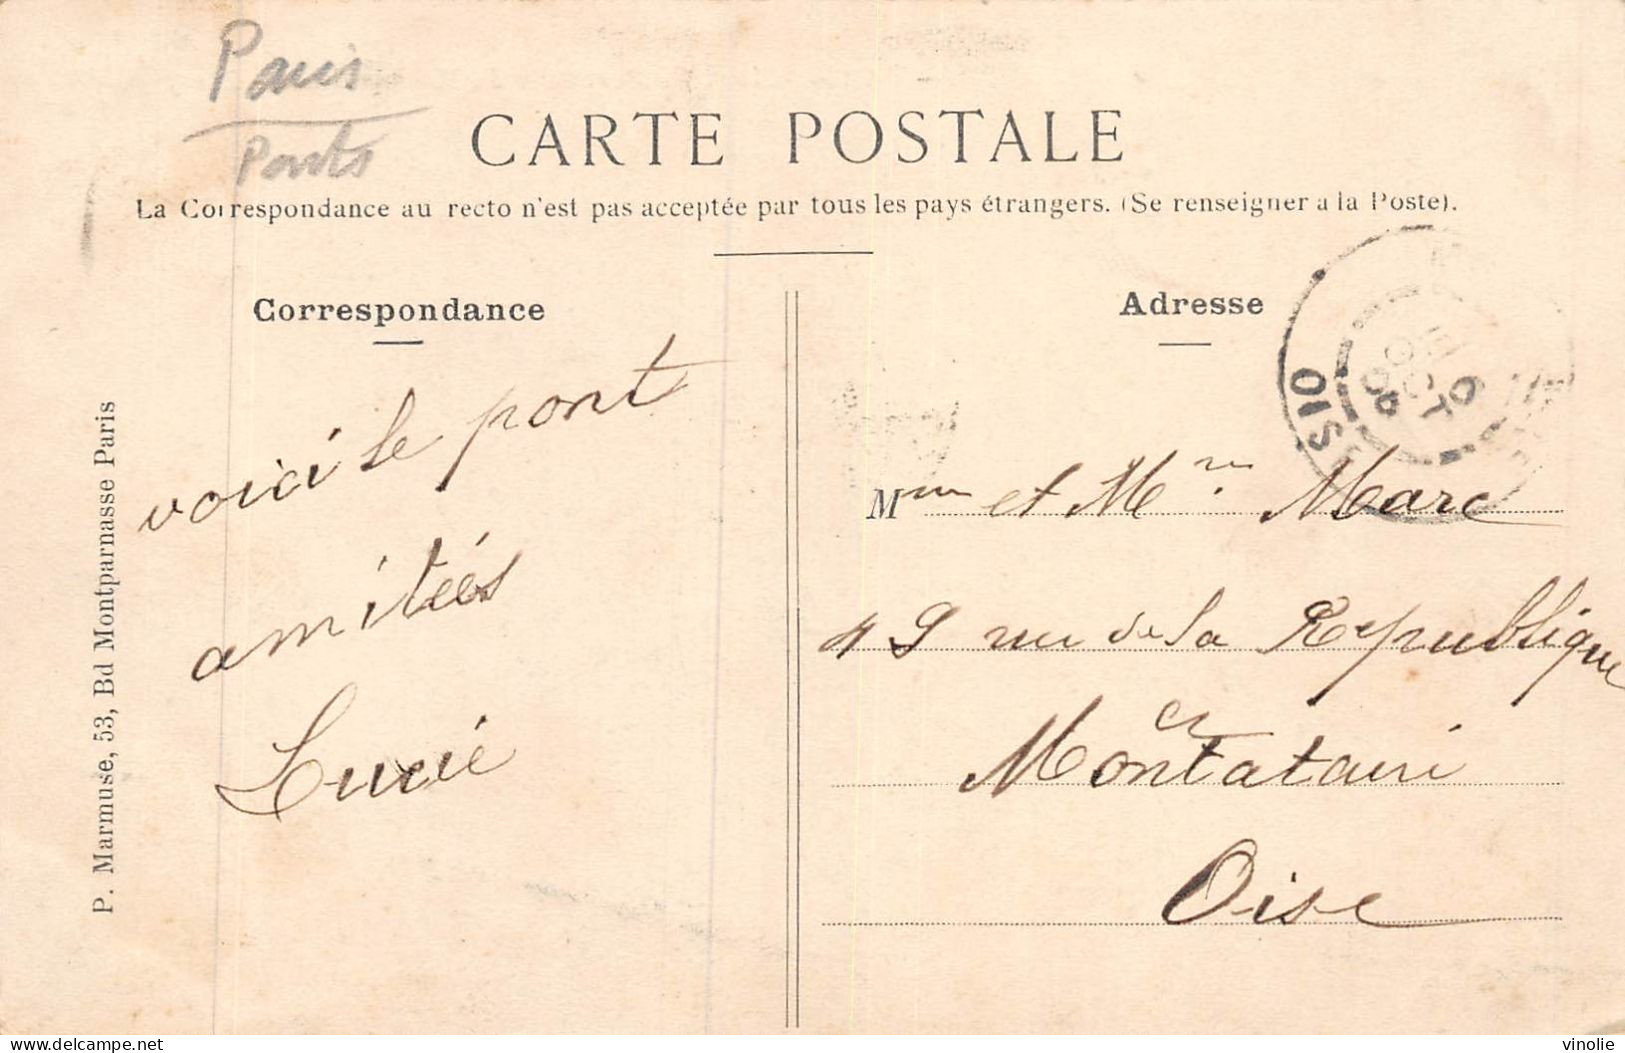 Paris
Ponts
CARTE POSTALE
La Correspondance au recto n'est pas acceptée par tous les pays étrangers. (Se renseigner a la Poste).
Correspondance
voici le pont
amitiés
Lucie
P. Marmuse, 53, Bd Montparnasse Paris
Adresse
OISE
6
OCT
Mme et Mr Marc
49 rue de la Republique
Montataire
Oise
delcampe.net
vinolie